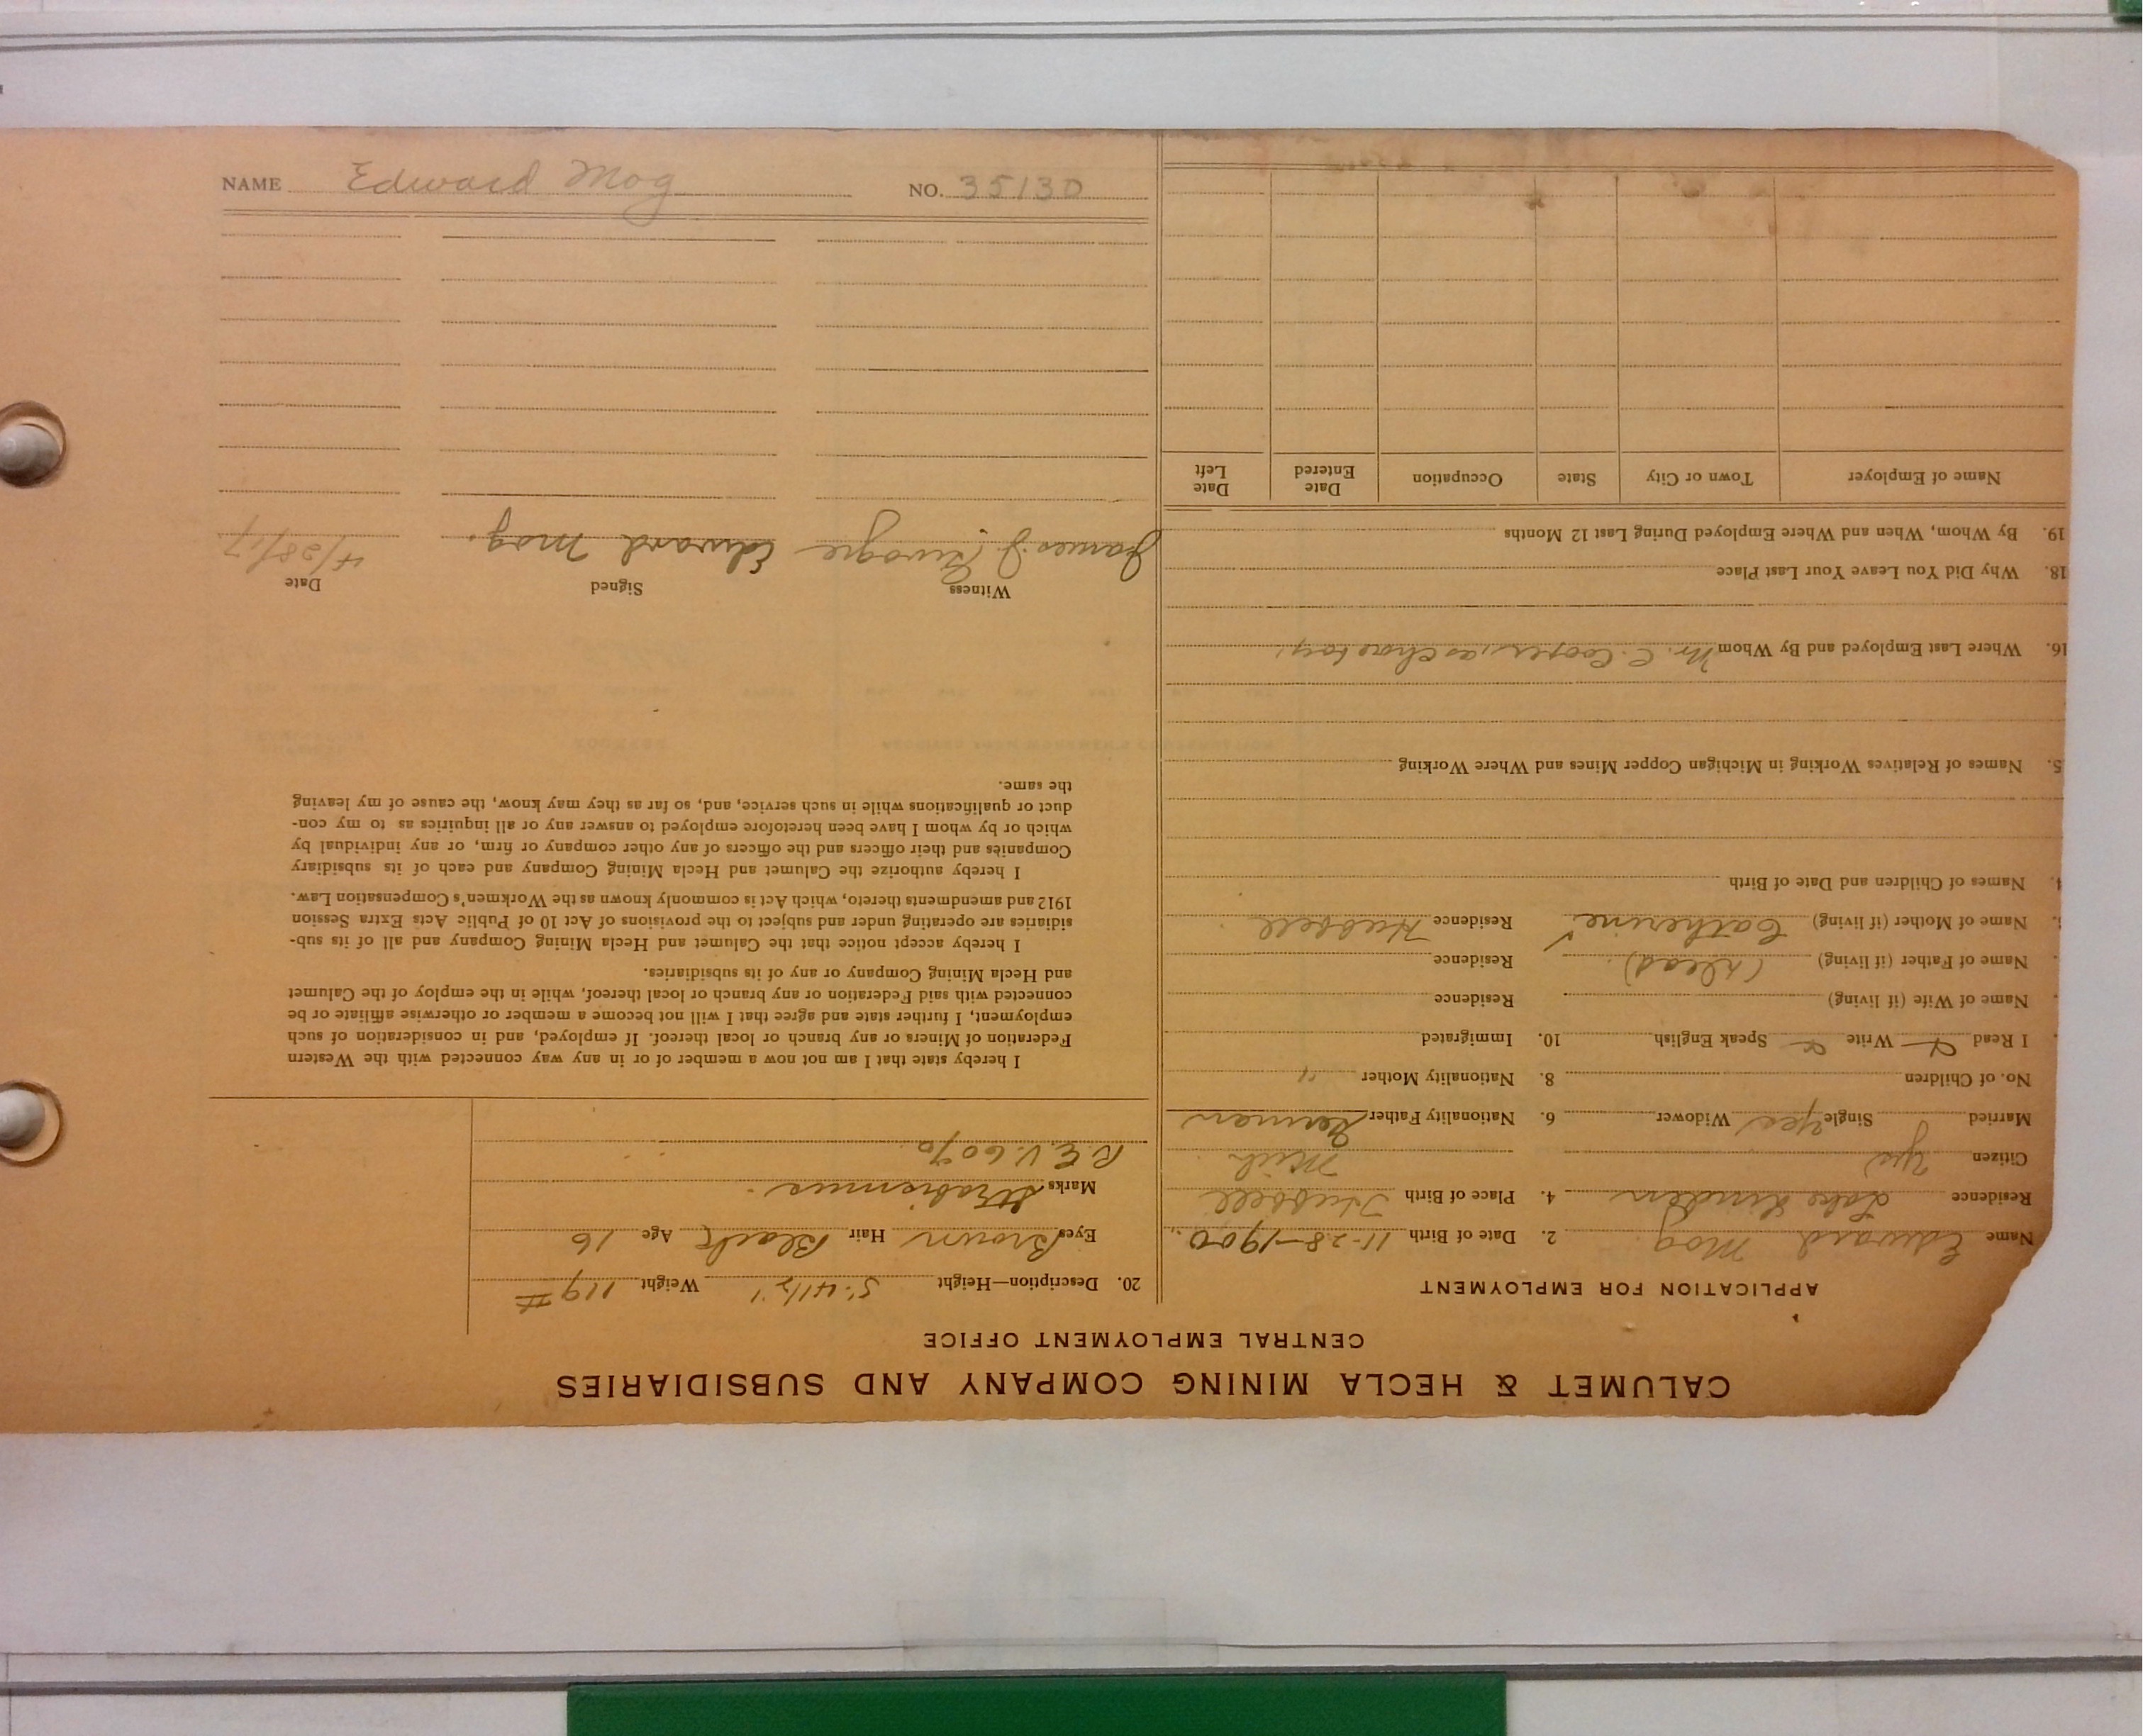 CALUMET & HECLA MINING COMPANY AND SUBSIDIARIES
CENTRAL EMPLOYMENT OFFICE
APPLICATION FOR EMPLOYMENT
Name Edward Mog 2. Date of Birth 11-28-1900
Residence Lake Linden 4. Place of Birth Hubbell
Citizen Yes Mich
Married Single yes Widower 6. Nationality Father German
No. of Children 8. Nationality Mother "
I Read Write Speak English 10. Immigrated
Name of Wife (if living) Residence
Name of Father (if living) (dead) Residence
Name of Mother (if living) Catherine Residence Hubbell
4. Names of Children and Date of Birth
5. Names of Relatives Working in Michigan Copper Mines and Where Working
16. Where Last Employed and By Whom Mr. C. Cooper, as chore boy.
18. Why Did You Leave Your Last Place
19. By Whom, When and Where Employed During Last 12 Months
Name of Employer Town or City State Occupation Date Entered Date Left
20. Description—Height 5' 4 1/2" Weight 119 #
Eyes Brown Hair Black Age 16
Marks
R.E.V. 60%
I hereby state that I am not now a member of or in any way connected with the Western
Federation of Miners or any branch or local thereof. If employed, and in consideration of such
employment, I further state and agree that I will not become a member or otherwise affiliate or be
connected with said Federation or any branch or local thereof, while in the employ of the Calumet
and Hecla Mining Company or any of its subsidiaries.
I hereby accept notice that the Calumet and Hecla Mining Company and all of its sub-
sidiaries are operating under and subject to the provisions of Act 10 of Public Acts Extra Session
1912 and amendments thereto, which Act is commonly known as the Workmen's Compensation Law.
I hereby authorize the Calumet and Hecla Mining Company and each of its subsidiary
Companies and their officers and the officers of any other company or firm, or any individual by
which or by whom I have been heretofore employed to answer any or all inquiries as to my con-
duct or qualifications while in such service, and, so far as they may know, the cause of my leaving
the same.
Witness Signed Date
James J. Edward Mog. 4/28/17
NAME Edward Mog NO. 35130